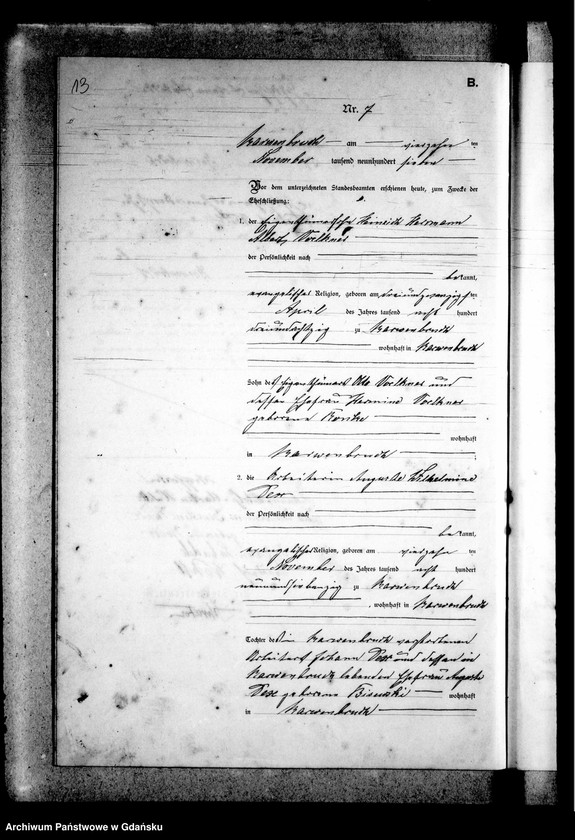 13
B.
Nr. 7
Karwenbruch am vierzehn ten
November tausend neunhundert sieben
Vor dem unterzeichneten Standesbeamten erschienen heute, zum Zwecke der
Eheschließung:
1. der Eigenthümersohn Heinrich Hermann
Albert Voelkner
der Persönlichkeit nach
bekannt,
evangelischer Religion, geboren am dreiundzwanzigsten
April des Jahres tausend acht hundert
dreiundachtzig zu Karwenbruch
wohnhaft in Karwenbruch
Sohn des Eigenthümers Otto Voelkner und
dessen Ehefrau Hermine Voelkner
geborene
wohnhaft
in Karwenbruch
2. die Arbeiterin Auguste Wilhelmine
der Persönlichkeit nach
bekannt,
evangelischer Religion, geboren am vierzehn ten
November des Jahres tausend acht hundert
neunundsiebenzig zu Karwenbruch
, wohnhaft in Karwenbruch
Tochter des in Karwenbruch verstorbenen
Arbeiters Johann und dessen in
Karwenbruch lebenden Ehefrau Auguste
geborene wohnhaft
in Karwenbruch
Archiwum Państwowe w Gdańsku